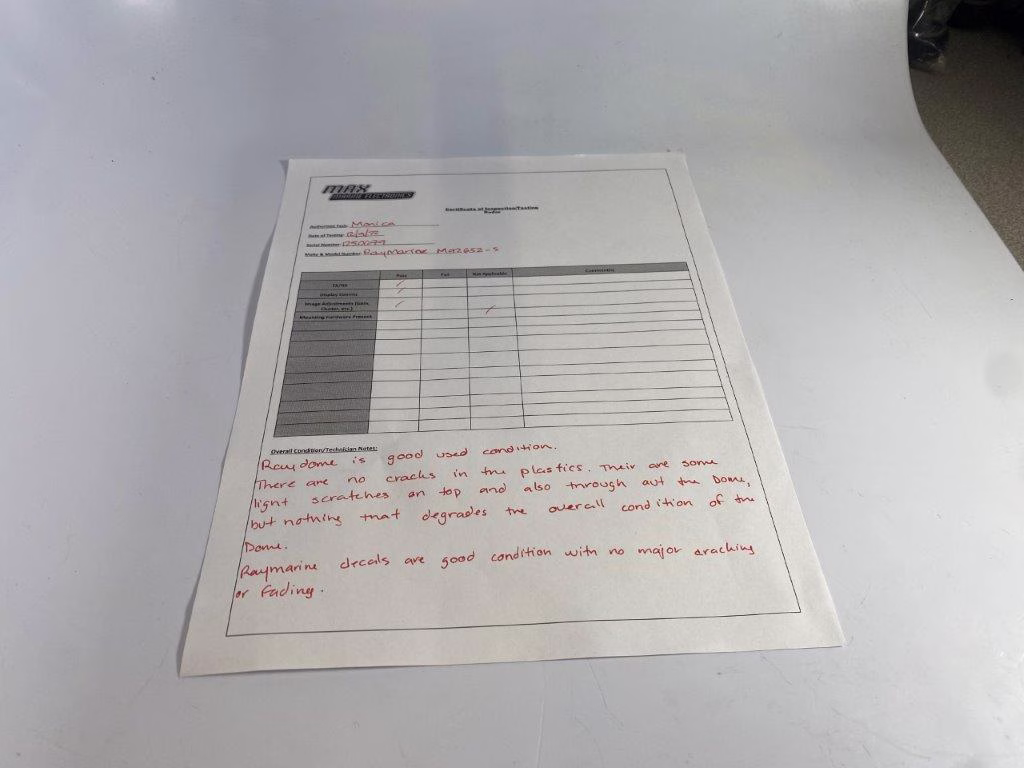 MAX
MARINE ELECTRONICS
Certificate of Inspection/Testing
Radar
Authorized Tech: Monica
Date of Testing:
Serial Number:
Make & Model Number: Raymarine M92652-S
Pass Fail Not Applicable Comments
TX/RX
Display
Image Adjustments (Gain,
Clutter, etc.)
Mounting Hardware Present
Overall Condition/Technician Notes:
Raydome is good used condition.
There are no cracks in the plastics. Their are some
light scratches on top and also through out the Dome,
but nothing that degrades the overall condition of the
Dome.
Raymarine decals are good condition with no major craching
or Fading.